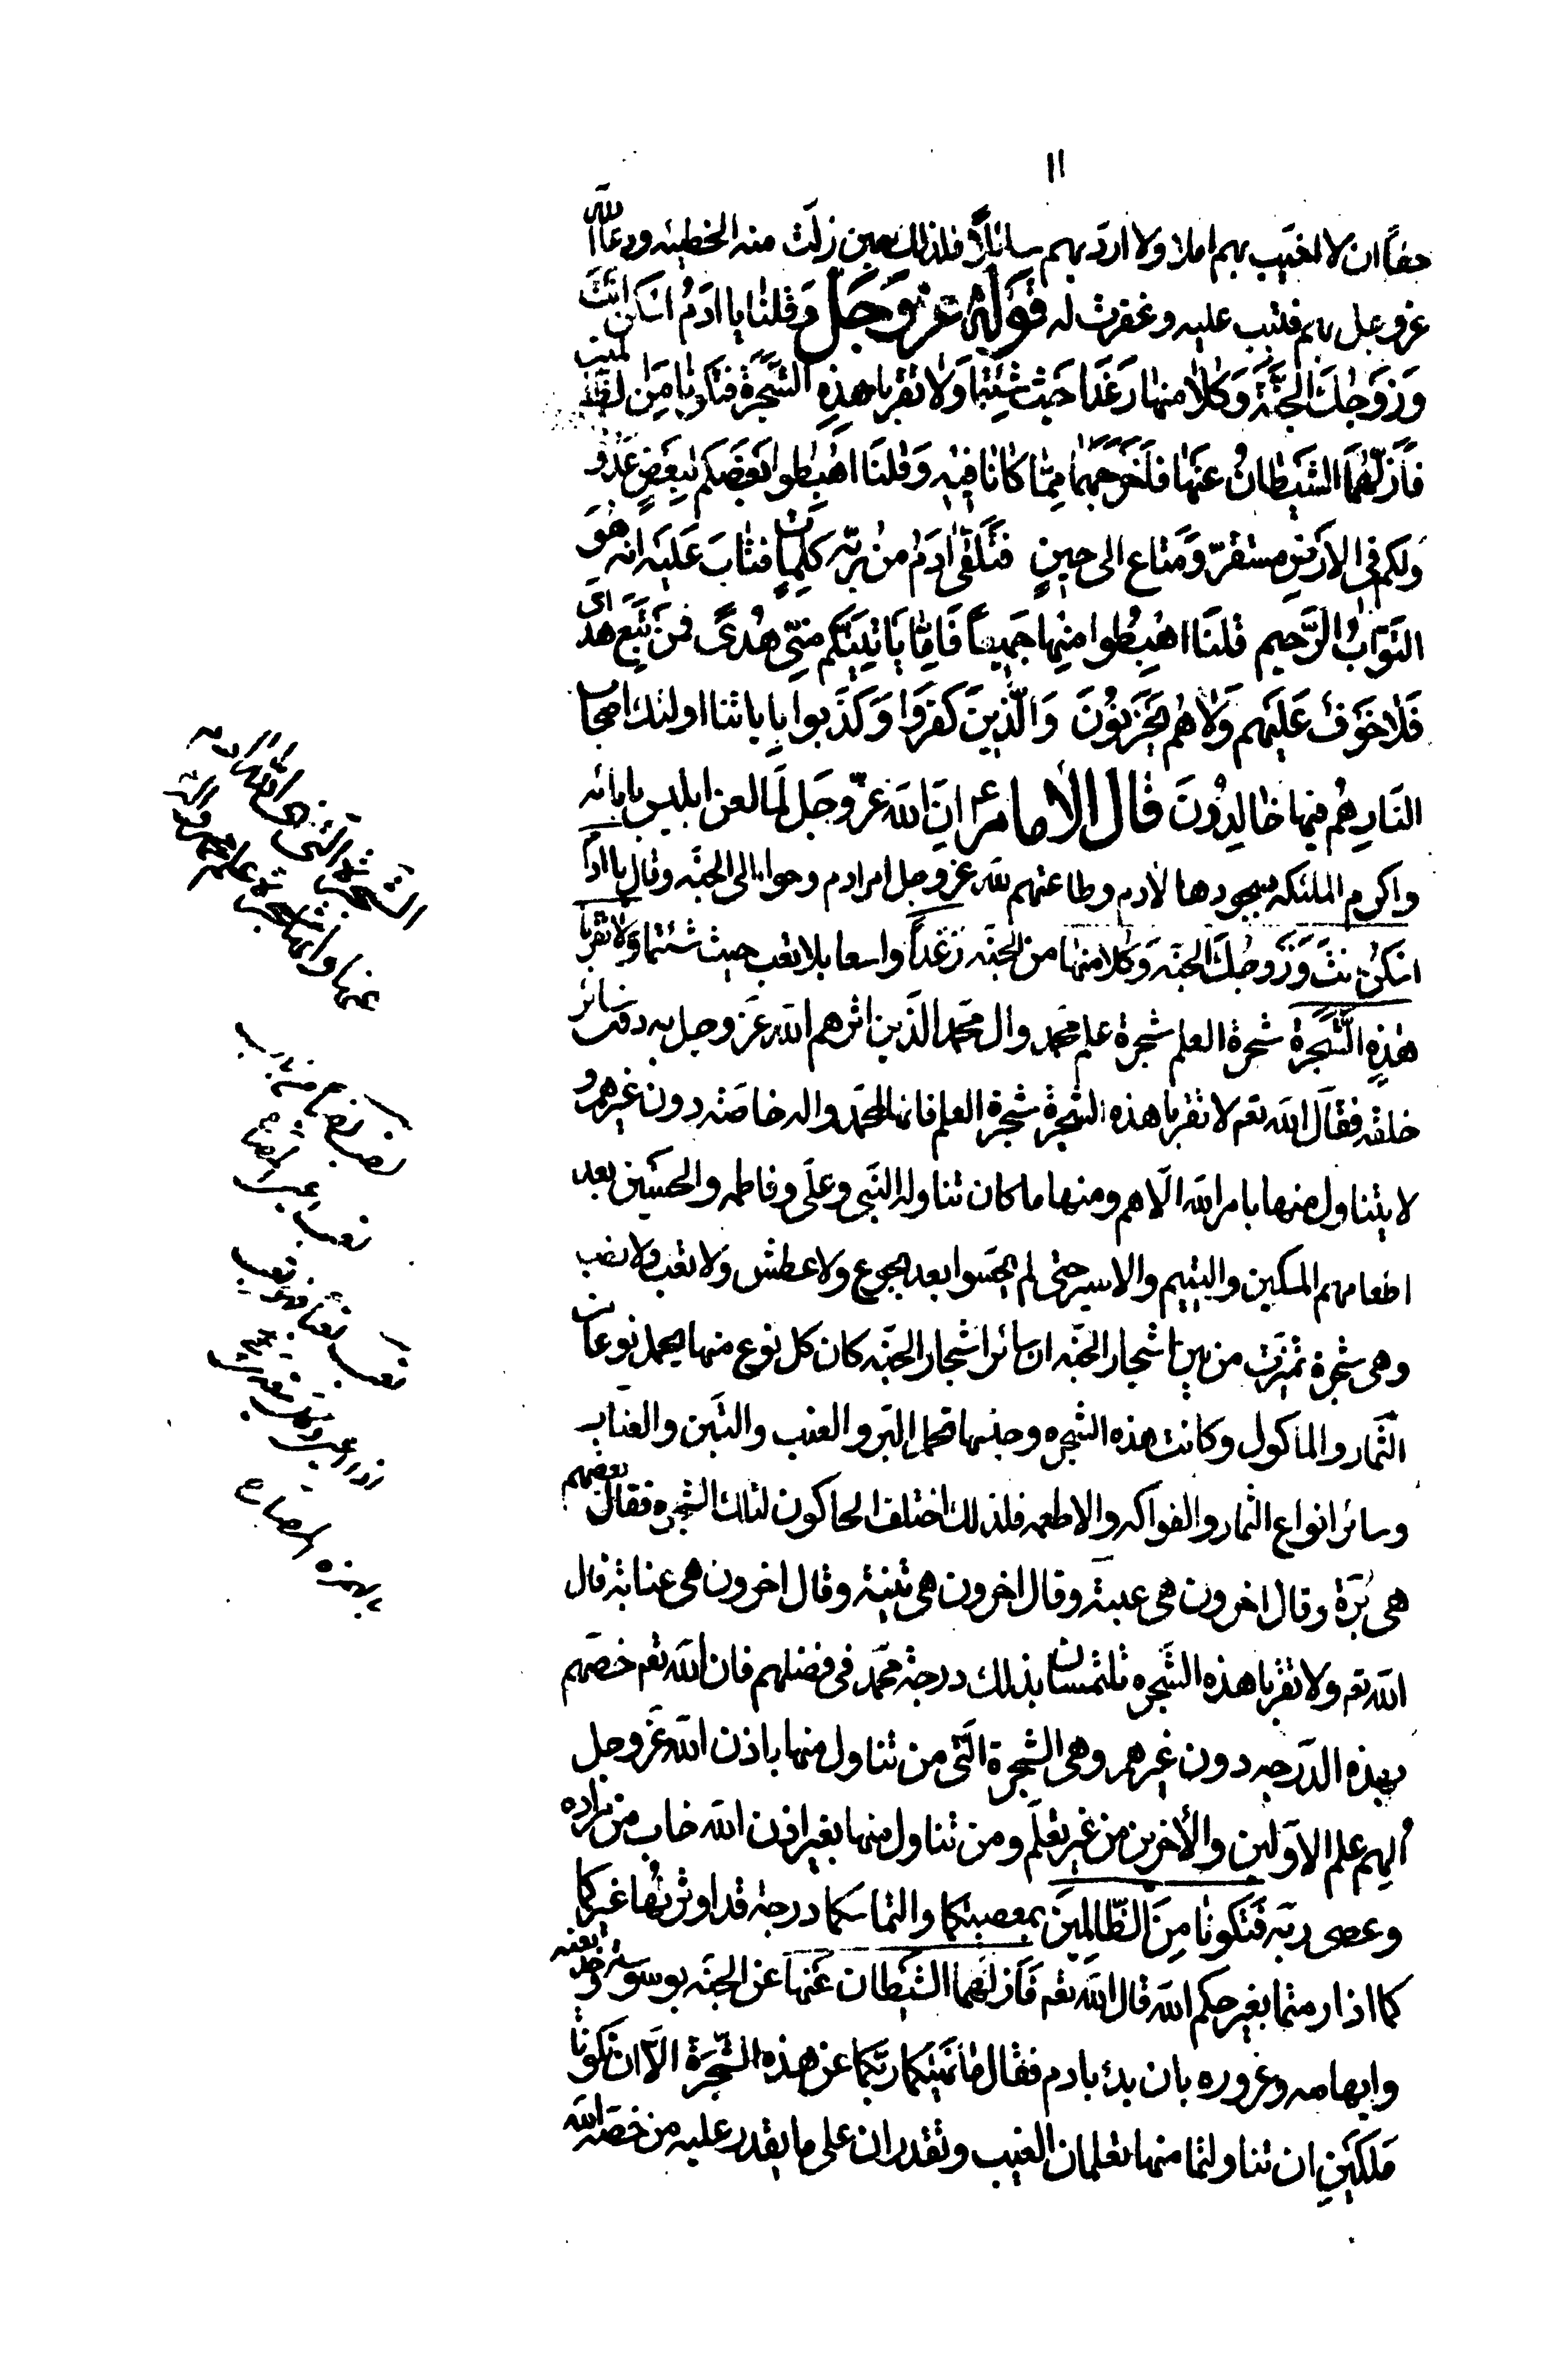 ١١
حقا ان لا اخيب بهم املا ولا ارد بهم سائلا فلذلك حين زلت منه الخطيئه ودعا الله
عز وجل بهم فتيب عليه وغفرت له قوله عز وجل وقلنا يا ادم اسكن انت
وزوجك الجنة وكلا منها رغدا حيث شئتما ولا تقربا هذه الشجرة فتكونا من الظالمين
فازلهما الشيطان عنها فاخرجهما مما كانا فيه وقلنا اهبطوا بعضكم لبعض عدو
ولكم في الارض مستقر ومتاع الى حين فتلقى ادم من ربه كلمات فتاب عليه انه هو
التواب الرحيم قلنا اهبطوا منها جميعا فاما ياتينكم منى هدى فمن تبع هداى
فلا خوف عليهم ولا هم يحزنون والذين كفروا وكذبوا باياتنا اولئك اصحاب
النار هم فيها خالدون قال الامام ان الله عز وجل لما لعن ابليس بابائه
واكرم الملئكه بسجودها لادم وطاعتهم لله عز وجل امر ادم وحوا الى الجنه وقال يا ادم
اسكن انت وزوجك الجنه وكلا منها من الجنه رغدا واسعا بلا تعب حيث شئتما ولا تقربا
هذه الشجرة شجرة العلم شجرة علم محمد وال محمد الذين اثرهم الله عز وجل به دون سائر
خلقه فقال الله تعم لا تقربا هذه الشجرة شجرة العلم فانها لمحمد واله خاصة دون غيرهم و
لا يتناول منها بامر الله الا هم ومنها ما كان تناوله النبى وعلى وفاطمه والحسنين بعد
اطعامهم المسكين واليتيم والاسير حتى لم يحسوا بعد بجوع ولا عطش ولا تعب ولا نصب
وهى شجرة تميزت من بين اشجار الجنه ان سائر اشجار الجنه كان كل نوع منها يحمل نوعا من
الثمار والماكول وكانت هذه الشجره وجنسها تحمل البر والعنب والتين والعناب
وسائر انواع الثمار والفواكه والاطعمه فلذلك اختلف الحاكون لتلك الشجره فقال بعضهم
هى برة وقال اخرون هى عنبة وقال اخرون هى تينة وقال اخرون هى عنابة قال
الله تعم ولا تقربا هذه الشجره تلتمسان بذلك درجة محمد فى فضلهم فان الله تعم خصهم
بهذه الدرجه دون غيرهم وهى الشجرة التى من تناول منها باذن الله عز وجل
الهم علم الاولين والاخرين من غير تعلم ومن تناول منها بغير اذن الله خاب من مراده
وعصى ربه فتكونا من الظالمين بمعصيتكما والتماسكما درجة قد اوثر بها غيركما
كما اذا رمتما بغير حكم الله قال الله تعم فازلهما الشيطان عنها عن الجنه بوسوسته وخديعته
وايهامه وغروره بان بدء بادم فقال ما نهيكما ربكما عن هذه الشجرة الا ان تكونا
ملكين ان تناولتما منها تعلمان الغيب وتقدران على ما يقدر عليه من خصه الله